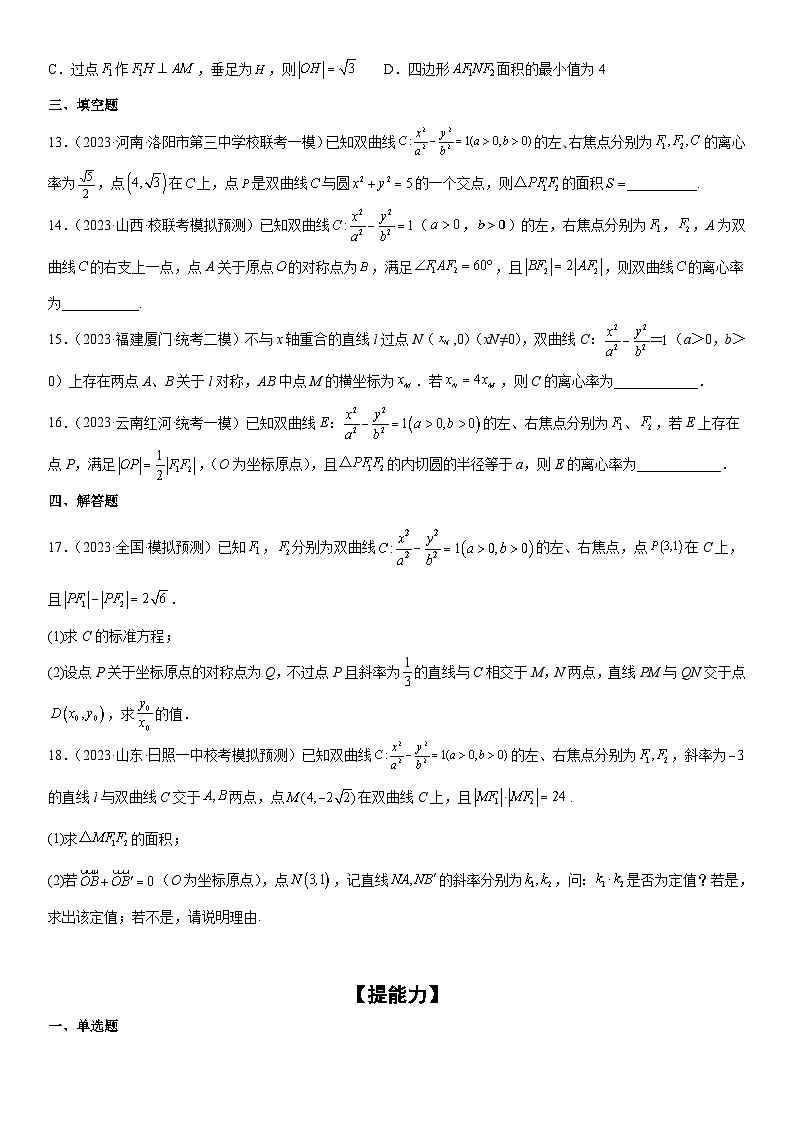 C．过点F₁作F₁H ⊥ AM，垂足为H，则|OH| = √3 D．四边形AF₁NF₂面积的最小值为4
三、填空题
13.（2023·河南·洛阳市第三中学校联考一模）已知双曲线C:x²/a² − y²/b² = 1(a > 0,b > 0)的左、右焦点分别为F₁,F₂,C的离心
率为√5/2，点(4,√3)在C上，点P是双曲线C与圆x² + y² = 5的一个交点，则△PF₁F₂的面积S =__________.
14.（2023·山西·校联考模拟预测）已知双曲线C:x²/a² − y²/b² = 1（a > 0，b > 0）的左，右焦点分别为F₁，F₂，A为双
曲线C的右支上一点，点A关于原点O的对称点为B，满足∠F₁AF₂ = 60°，且|BF₂| = 2|AF₂|，则双曲线C的离心率
为___________.
15.（2023·福建厦门·统考二模）不与x轴重合的直线l过点N（x_N,0）（xN≠0），双曲线C：x²/a² − y²/b² =1（a＞0，b＞
0）上存在两点A、B关于l对称，AB中点M的横坐标为x_M．若x_N = 4x_M，则C的离心率为____________．
16.（2023·云南红河·统考一模）已知双曲线E：x²/a² − y²/b² = 1(a > 0,b > 0)的左、右焦点分别为F₁、F₂，若E上存在
点P，满足|OP| = 1/2|F₁F₂|，（O为坐标原点），且△PF₁F₂的内切圆的半径等于a，则E的离心率为____________．
四、解答题
17.（2023·全国·模拟预测）已知F₁，F₂分别为双曲线C:x²/a² − y²/b² = 1(a > 0,b > 0)的左、右焦点，点P(3,1)在C上，
且|PF₁| − |PF₂| = 2√6．
(1)求C的标准方程；
(2)设点P关于坐标原点的对称点为Q，不过点P且斜率为1/3的直线与C相交于M，N两点，直线PM与QN交于点
D(x₀,y₀)，求y₀/x₀的值．
18.（2023·山东·日照一中校考模拟预测）已知双曲线C:x²/a² − y²/b² = 1(a > 0,b > 0)的左、右焦点分别为F₁,F₂，斜率为−3
的直线l与双曲线C交于A,B两点，点M(4,−2√2)在双曲线C上，且|MF₁|·|MF₂| = 24．
(1)求△MF₁F₂的面积；
(2)若OB + OB′ = 0（O为坐标原点），点N(3,1)，记直线NA,NB′的斜率分别为k₁,k₂，问：k₁·k₂是否为定值？若是，
求出该定值；若不是，请说明理由.
【提能力】
一、单选题